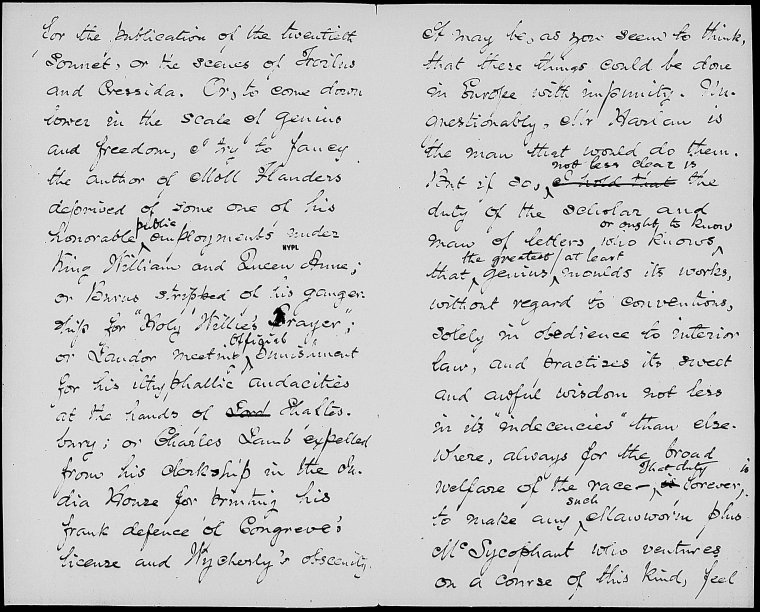 for the publication of the twentieth
sonnet, or the scenes of Troilus
and Cressida. Or, to come down
lower in the scale of genius
and freedom, try to fancy
the author of Moll Flanders
deprived of some one of his
honorable public employments under
NYPL
King William and Queen Anne;
or Burns stripped of his gauger-
ship for "Holy Willie's Prayer";
or Landor meeting official punishment
for his ithyphallic audacities
at the hands of Lord Shaftes-
bury; or Charles Lamb expelled
from his clerkship in the In-
dia House for printing his
frank defence of Congreve's
license and Wycherly's obscenity.
It may be, as you seem to think,
that these things could be done
in Europe with impunity. Un-
questionably, Mr Harlan is
the man that would do them.
But if so, not less clear is I hold that the
duty of the scholar and
man of letters who knows, or ought to know
that the greatest genius, at least moulds its works,
without regard to conventions,
solely in obedience to interior
law, and practises its sweet
and awful wisdom not less
in its "indecencies" than else-
where, always for the broad
welfare of the race— That duty is is forever,
to make any such Mawworm plus
McSycophant who ventures
on a course of this kind, feel